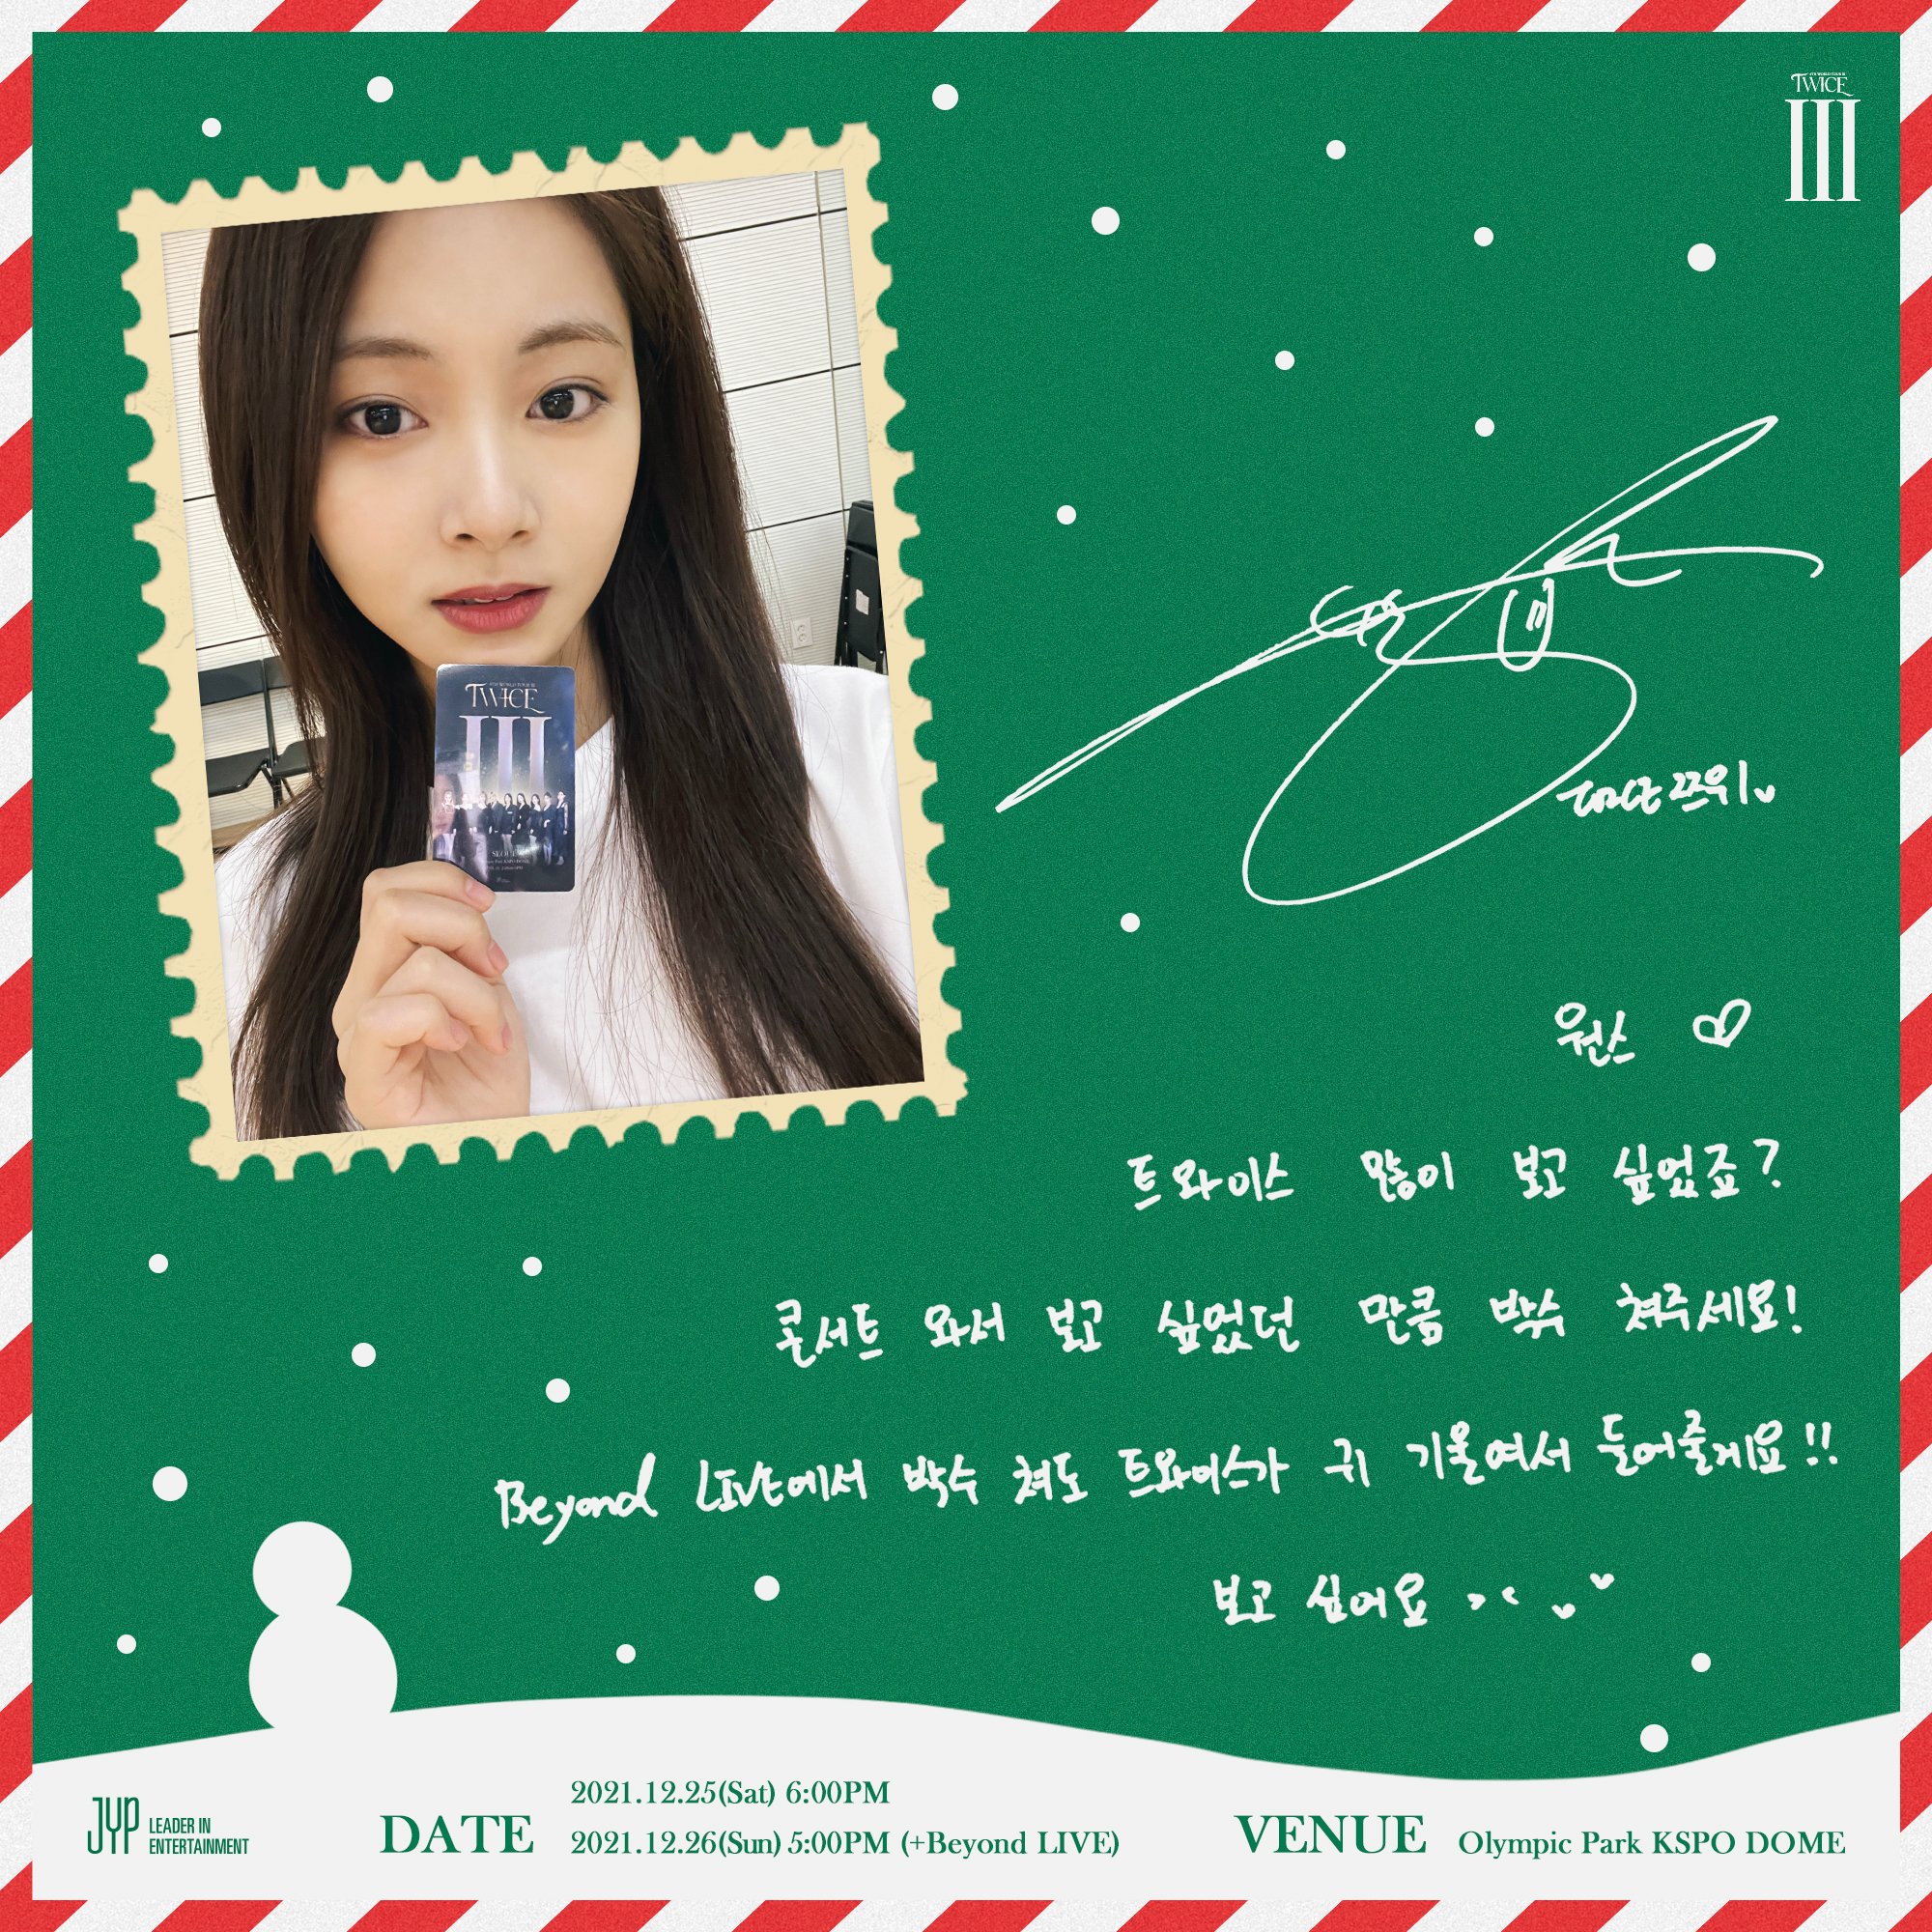 TWICE
III
TWICE
III
SEOUL
TWICE 쯔위
원스
트와이스 많이 보고 싶었죠?
콘서트 와서 보고 싶었던 만큼 박수 쳐주세요!
Beyond LIVE에서 박수 쳐도 트와이스가 귀 기울여서 들어줄게요!!
보고 싶어요 > <
JYP LEADER IN
ENTERTAINMENT
DATE
2021.12.25(Sat) 6:00PM
2021.12.26(Sun) 5:00PM (+Beyond LIVE)
VENUE
Olympic Park KSPO DOME